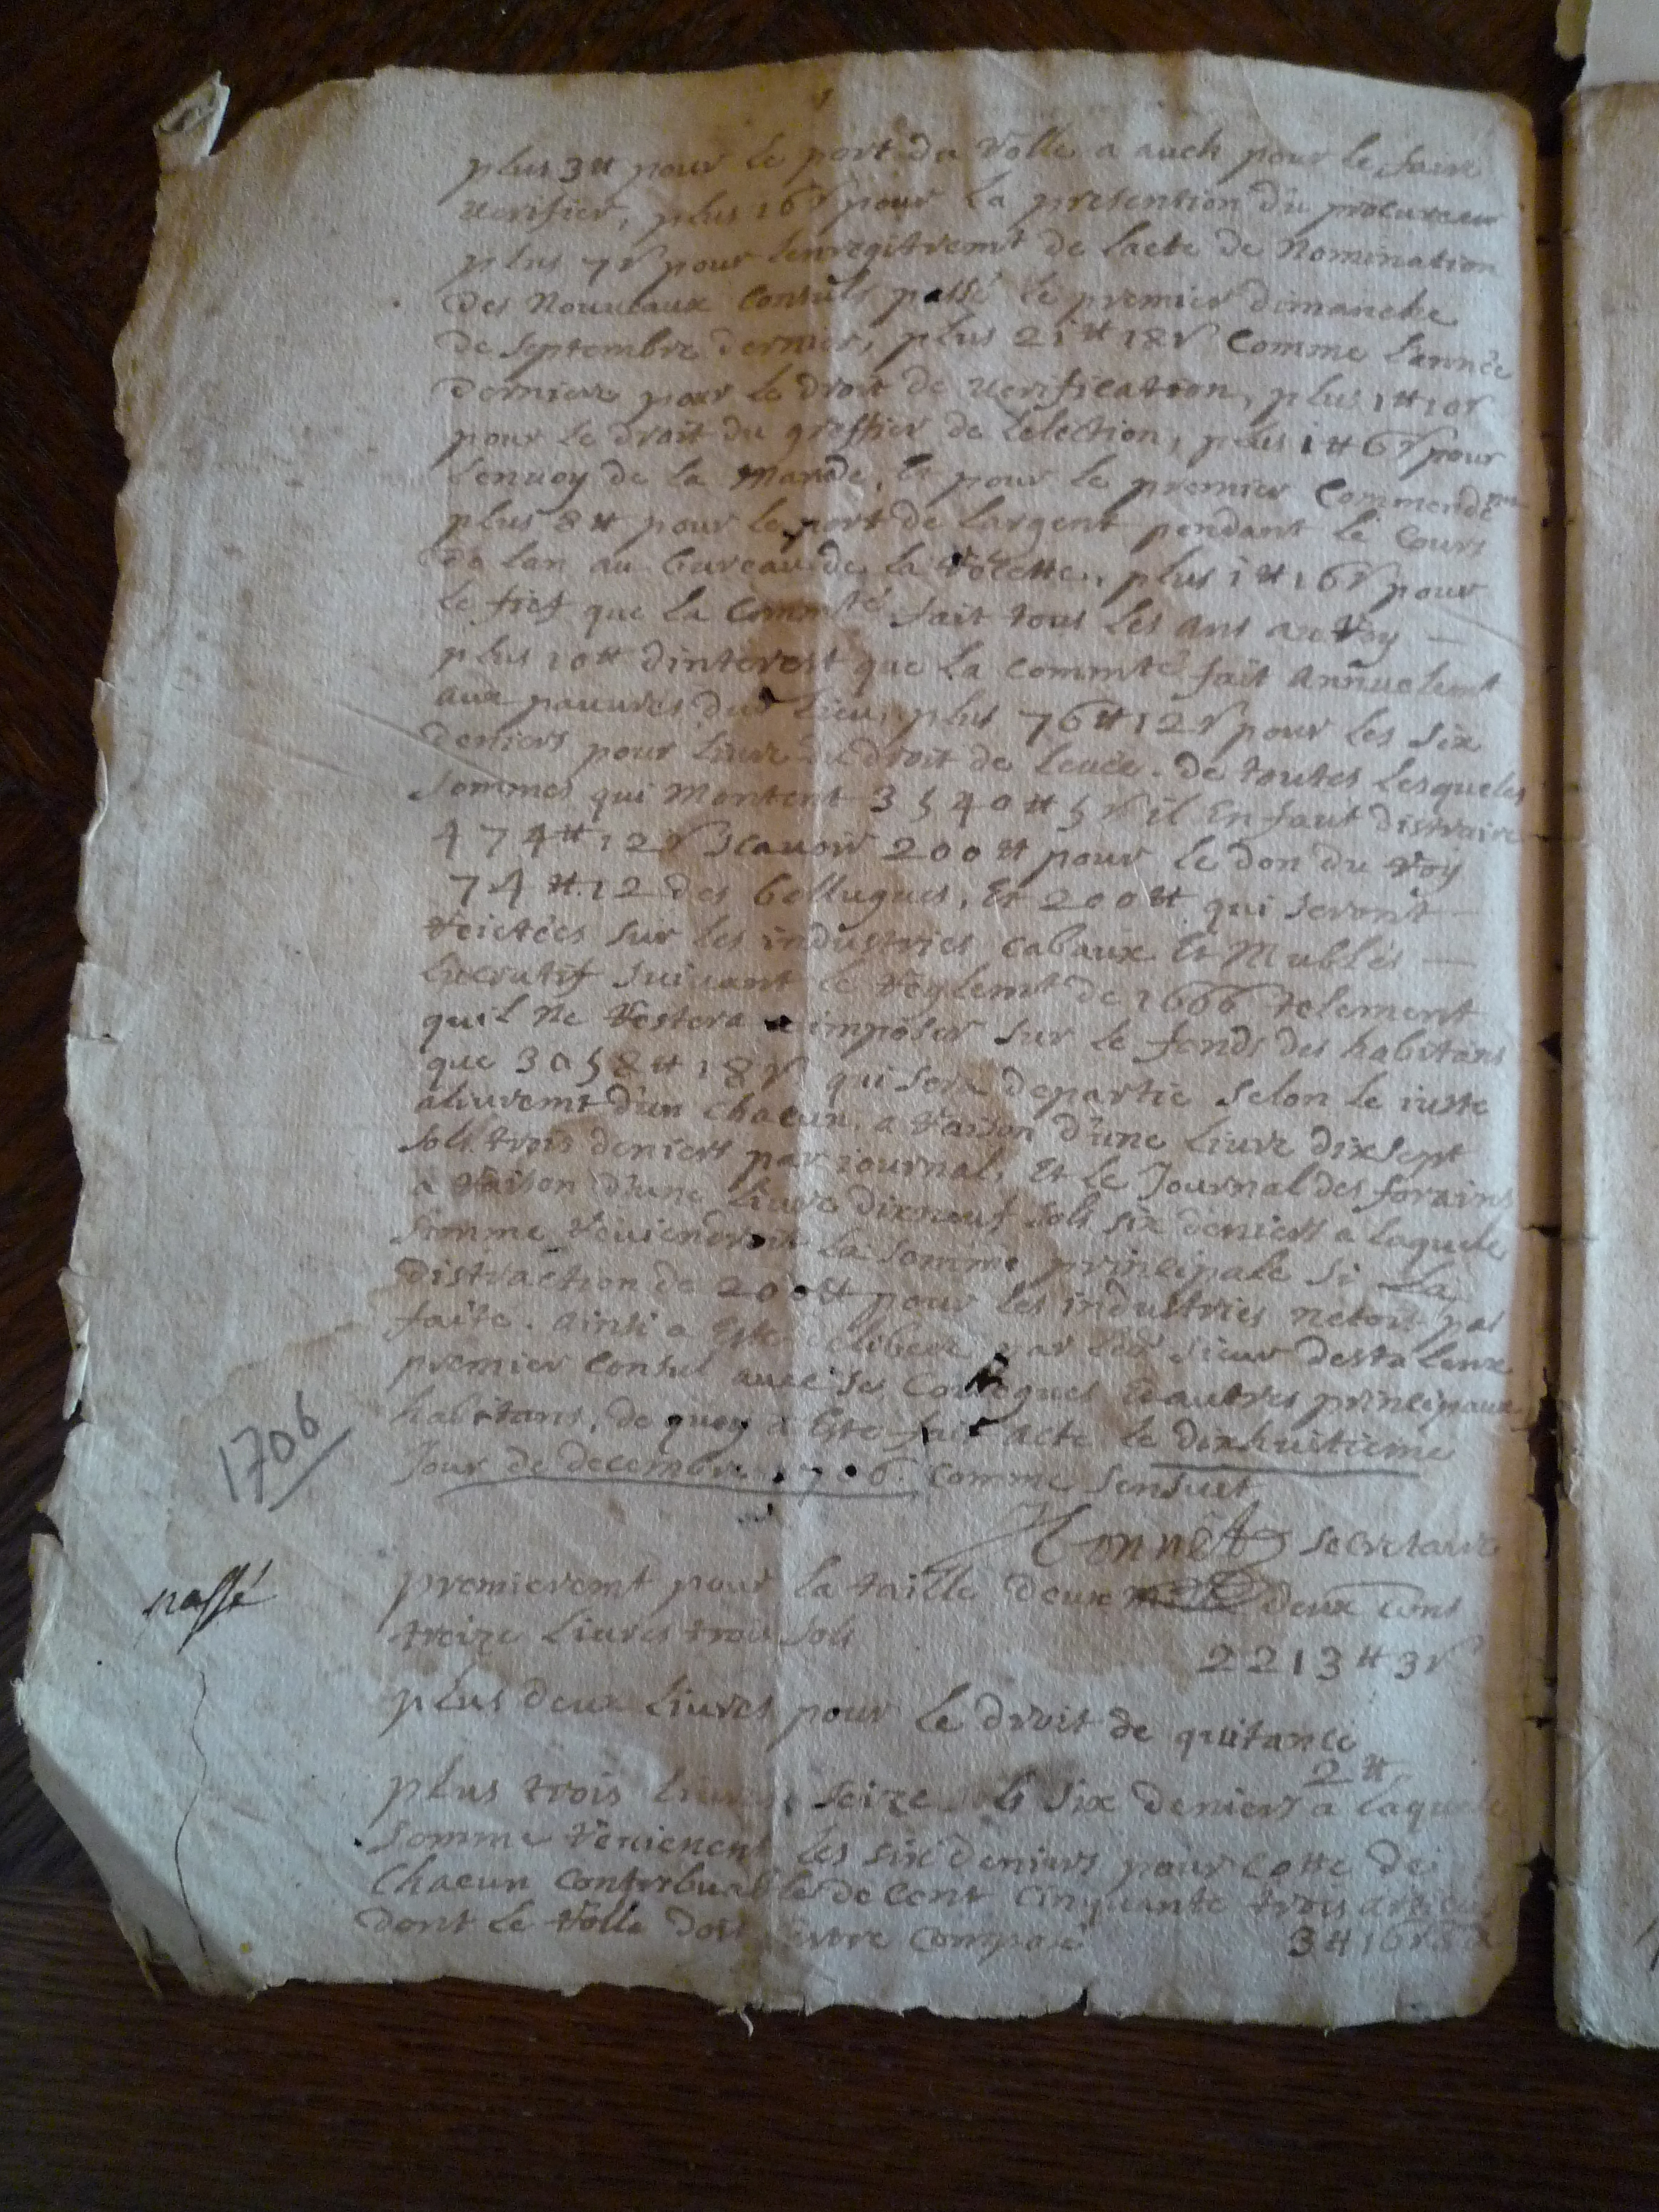 plus 3 ₶ pour le port du rolle a auch pour le faire
verifier, plus 16 s pour la presention du procureur
plus 7 s pour lenregitremt de lacte de Nomination
des Nouveaux Consuls passé le premier dimanche
de septembre dernier, plus 21 ₶ 18 s Comme l'année
derniere pour le droit de verification, plus 1 ₶ 10 s
pour le droit du greffier de lelection, plus 1 ₶ 6 s pour
l'envoy de la Mande, Et pour le premier Commendemt
plus 8 ₶ pour le port de largent pendant le Cours
de lan au bureau de la recette, plus 1 ₶ 16 s pour
le fief que la Commté fait tous les ans au Roy —
plus 10 ₶ dinterest que la Commté fait Annuelemt
aux pauvres dud Lieu, plus 76 ₶ 12 s pour les six
deniers pour livre du droit de levée. de toutes Lesqueles
sommes qui Montent 3540 ₶ 5 s il En faut distraire
474 ₶ 12 s scavoir 200 ₶ pour le don du Roy
74 ₶ 12 des bellugues, Et 200 ₶ qui seront —
reietées sur les industries Cabaux Et Mubles —
lucratif suivant le reglemt de 1666 telement
quil Ne restera a imposer sur le fonds des habitans
que 3058 ₶ 18 s qui sera departie selon le iuste
alivremt d'un Chacun, a raison d'une Livre dixsept
sols trois deniers par iournal, Et le Journal des forains
a raison d'une Livre dixneuf sols six deniers a laquele
somme reviendroit la somme principale si La
distraction de 200 ₶ pour les industries netoit pas
faite. ainsi a Este deliberé par led sieur destalenx
premier Consul avec ses Colegues & autres principaux
habitans, de quoy a Este fait acte le dixhuitieme
Jour de decembre 1706. Comme sensuit
1706
Connet secretaire
passé
premieremt pour la taille deux mille deux cens
treize livres trois sols
2213 ₶ 3 s
plus deux livres pour le droit de quitance
2 ₶
plus trois livres seize sols six deniers a laquele
somme revienent les six deniers pour cotte de
Chacun Contribuable de Cent Cinquante trois articles
dont le rolle doit estre Composé
3 ₶ 16 s 6 d